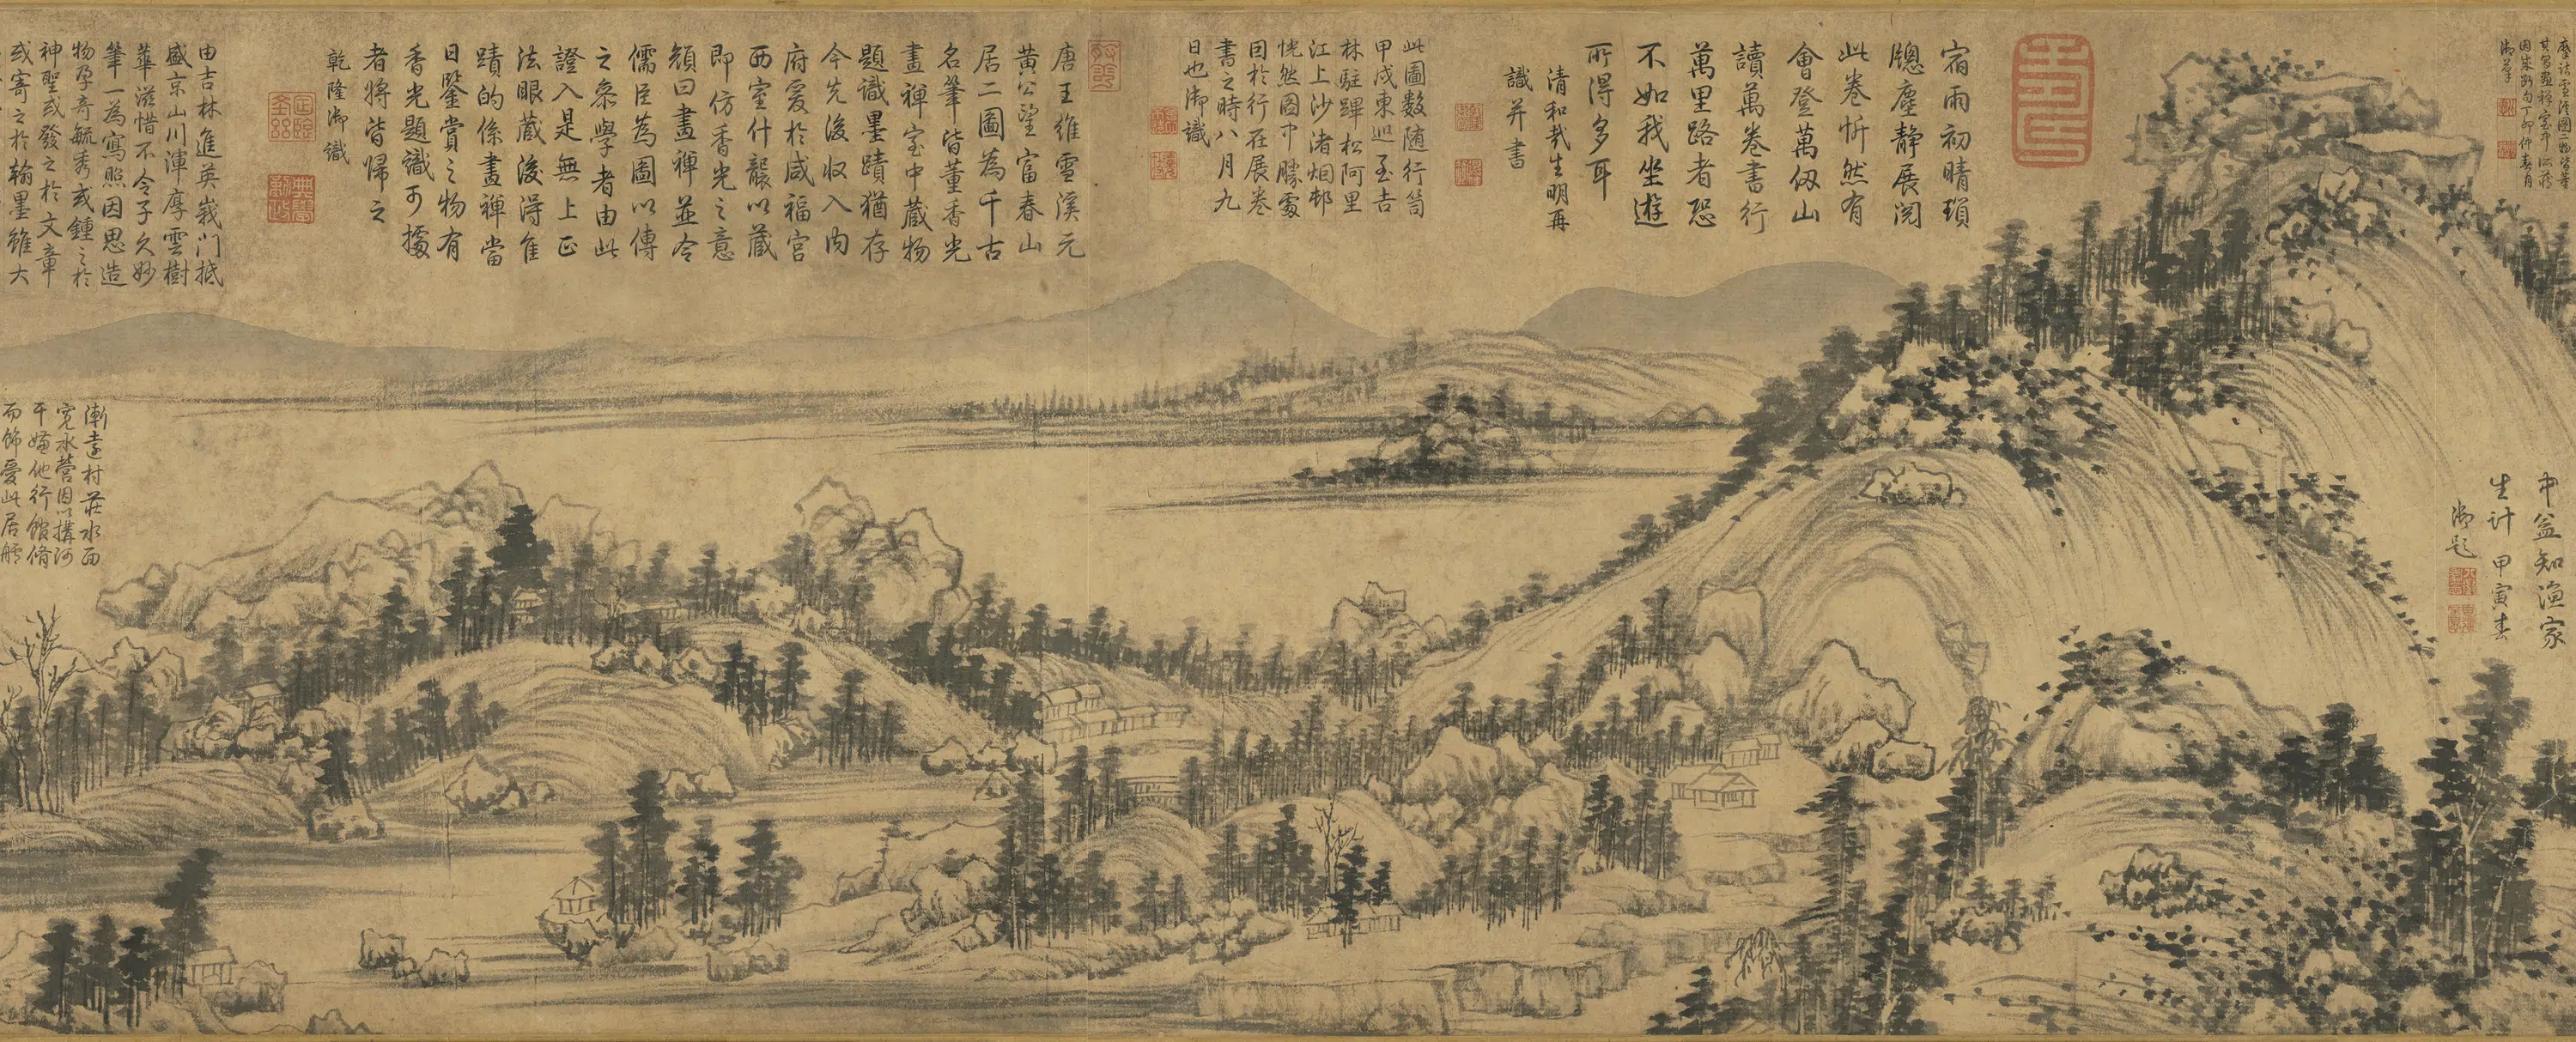 其寫照禪室中所藏
因成斷句丁卯仲春月
御筆
中益知漁家
生計甲寅春
御題
宿雨初晴瑣
牕塵静展閱
此卷忻然有
會登萬仭山
讀萬卷書行
萬里路者恐
不如我坐遊
所得多耳
清和哉生明再
識并書
此圖數隨行笥
甲戌東巡至吉
林駐蹕松阿里
江上沙渚烟邨
恍然圖中勝處
因於行在展卷
書之時八月九
日也御識
唐王維雪溪元
黃公望富春山
居二圖為千古
名筆皆董香光
畫禪室中蔵物
題識墨蹟猶存
今先後収入内
府爰於咸福宮
西室什襲以蔵
即仿香光之意
頟曰畫禪並令
儒臣為圖以傳
之叅學者由此
證入是無上正
法眼蔵後淂隹
蹟的係畫禪當
日鑒賞之物有
香光題識可據
者將皆歸之
乾隆御識
由吉林進英峩門抵
盛京山川渾厚雲樹
華滋惜不令子久妙
筆一為寫照因思造
物孕奇毓秀或鍾之於
神聖或發之於文章
或寄之於翰墨雖大
漸遠村莊水面
寛水營因以搆河
干嫌他行館脩
而飾愛此居